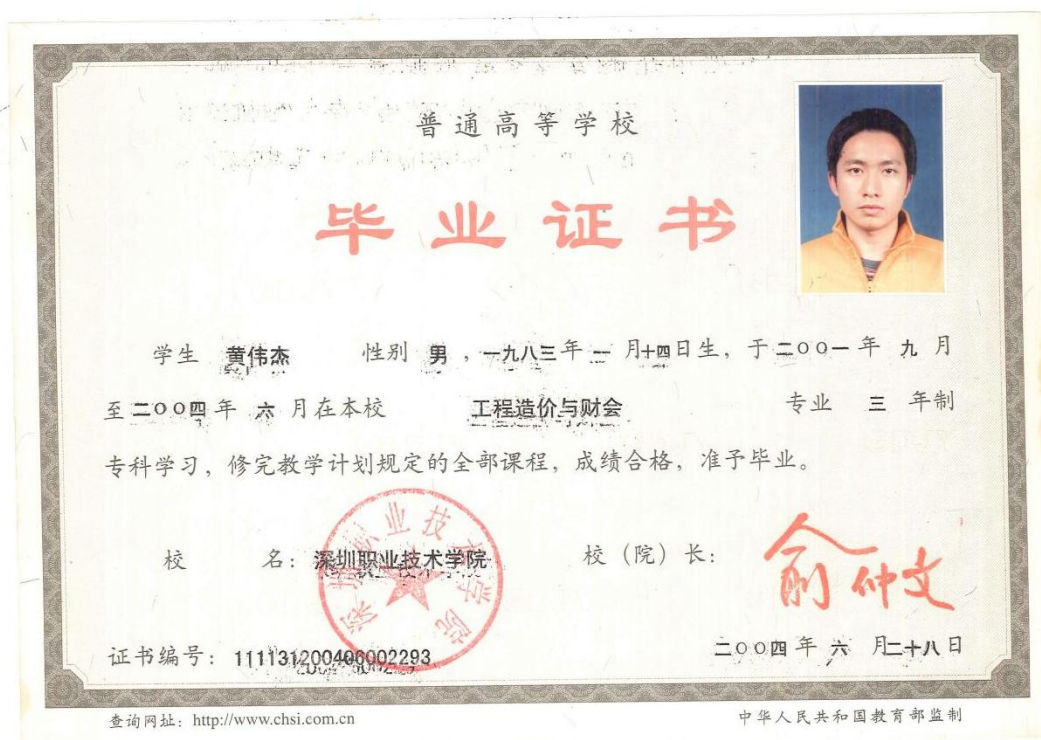 普通高等学校
毕业证书
学生 黄伟杰 性别 男 ，一九八三年 一 月十四日生，于二〇〇一年 九 月
至二〇〇四年 六 月在本校 工程造价与财会 专业 三 年制
专科学习，修完教学计划规定的全部课程，成绩合格，准予毕业。
校 名：深圳职业技术学院 校（院）长：俞仲文
深圳职业技术学院
二〇〇四年 六 月二十八日
证书编号：111131200406002293
查询网址：http://www.chsi.com.cn 中华人民共和国教育部监制